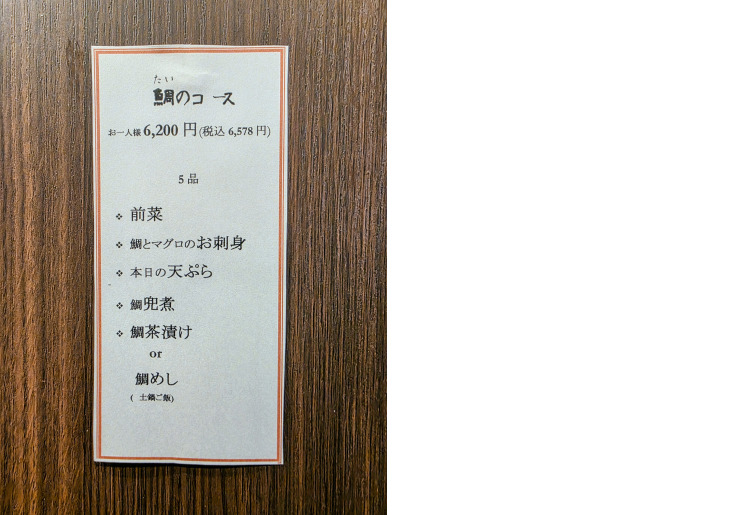 たい
鯛のコース
お一人様 6,200 円 (税込 6,578 円)
5 品
❖ 前菜
❖ 鯛とマグロのお刺身
❖ 本日の天ぷら
❖ 鯛兜煮
❖ 鯛茶漬け
or
鯛めし
( 土鍋ご飯)